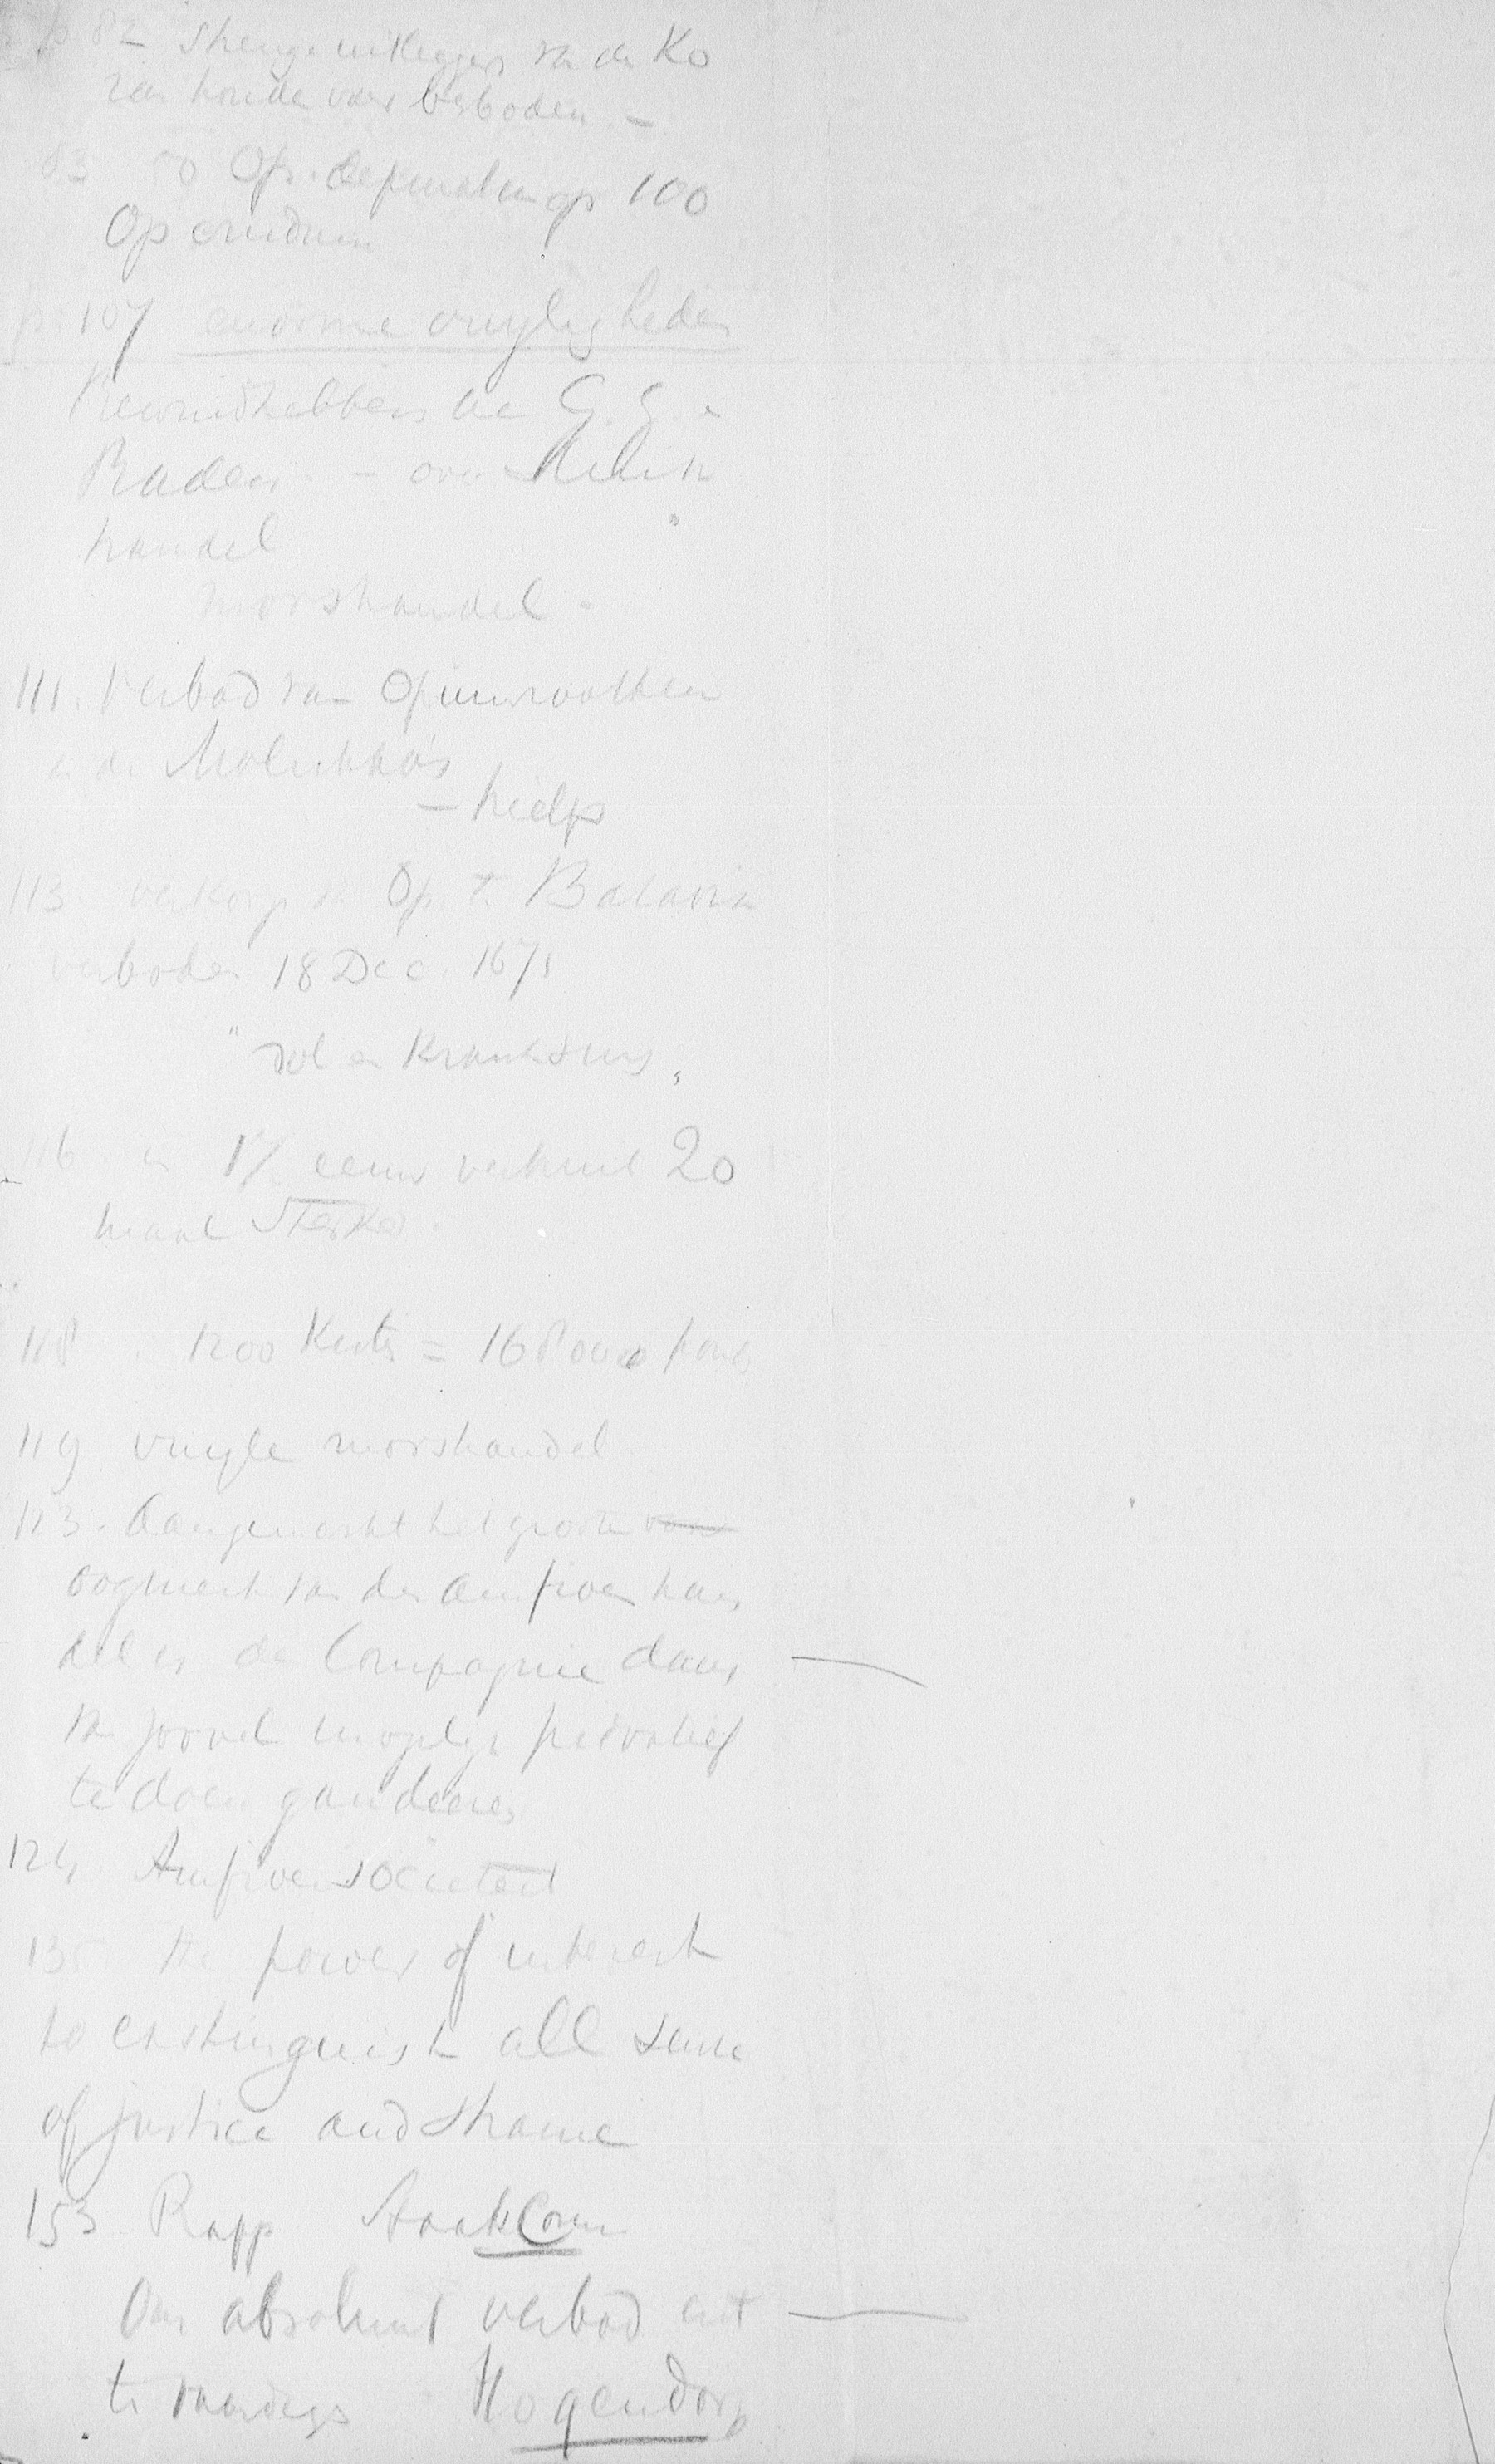 p. 82 Strenge uitleggers van de Ko
ran houden voor verboden. –
82 50 Op. depuratum op 100
Op crudum
p. 107 enorme vuyligheden
Bewindhebbers de G. G. &
Raden. – over sluik
handel
morshandel.
111. Verbod van Opiumrooken
in de Molukko's
– hielp
113 verkoop van Op. te Batavia
verboden 18 Dec. 1671
" dol en kranksing "
116 in 17e eeuw verbruik 20
maal sterker.
118 1200 kisten = 168000 pond
119 vuyle morshandel
123. Aangemerkt het groote
oogmerk van den amfioen han
del is de Compagnie daar
van zooveel mogelijk privatief
te doen gaudeeren
124 Amfioen societeit
135 the power of interest
to extinguish all sense
of justice and shame
153 Rapp StaatsCom
Om absoluut verbod uit
te vaardigen Hogendorp